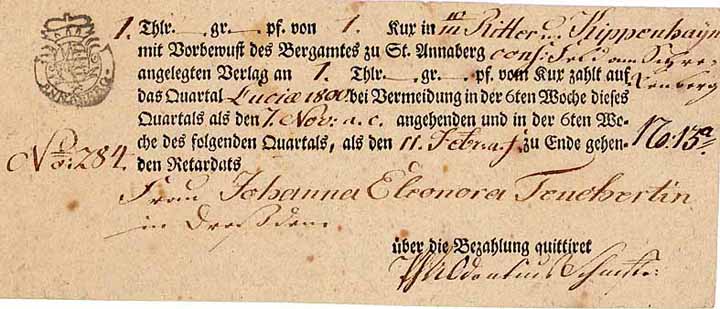 1. Thlr. gr. pf. von 1. Kux in Ritter Kippenhayn
mit Vorbewußt des Bergamtes zu St. Annaberg cons: Feld am Schre-
angelegten Verlag an 1. Thlr. gr. pf. vom Kux zahlt auf ckenberg
das Quartal Luciæ 1800. bei Vermeidung in der 6ten Woche dieses
Quartals als den 7. Nov: a. c. angehenden und in der 6ten Wo-
che des folgenden Quartals, als den 11. Febr: a. f. zu Ende gehen- No: 13.
den Retardats
No: 284.
Frau Johanna Eleonora Teuchertin
in Dreßden
über die Bezahlung quittiret